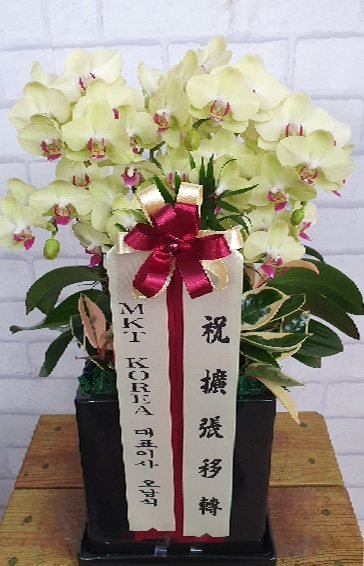 祝擴張移轉
MKT KOREA 대표이사 오남식